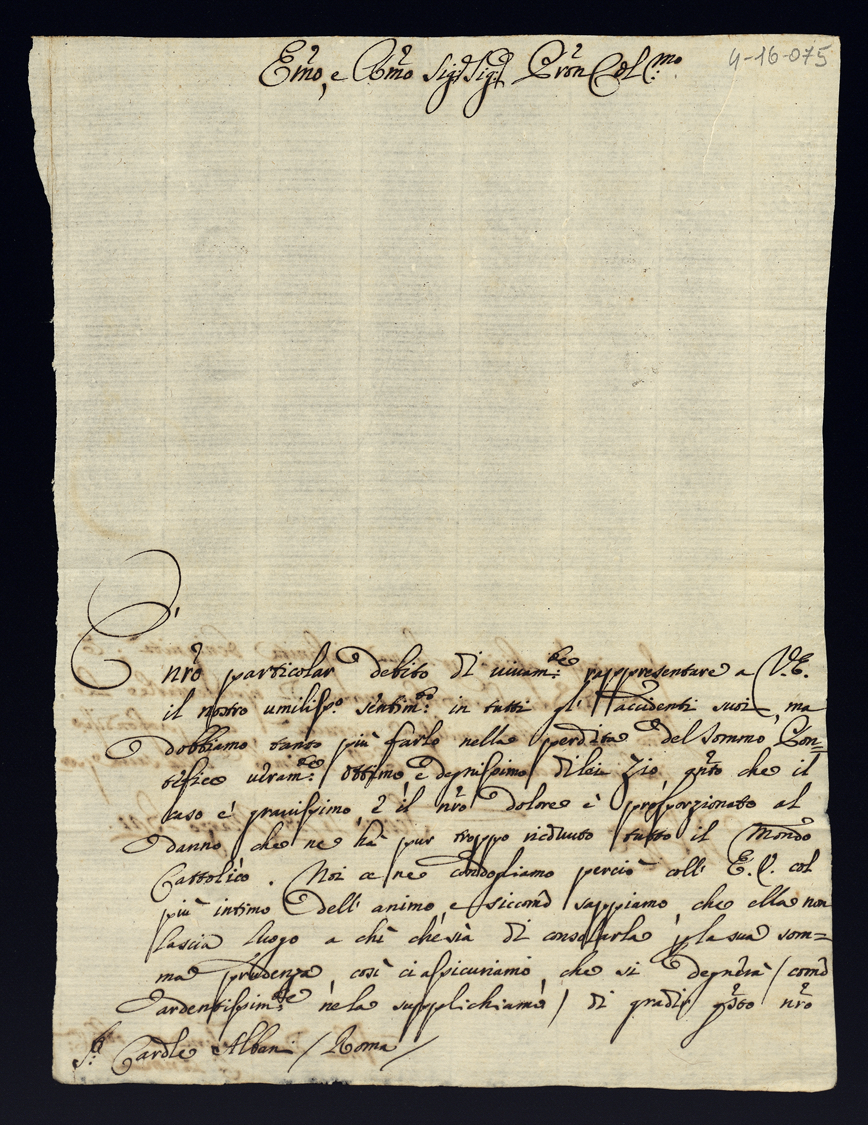 4-16-075
Emo, e Rmo Sig.r Sig.r Pron Col.mo
È nro particolar debito di vivam.te rappresentare a V.E.
il nostro umiliss.o sentim.to in tutti gl' accidenti suoi, ma
dobbiamo tanto più farlo nella perdita del Sommo Pon=
tefice veram.te ottimo, e degnissimo di lei Zio, q.to che il
caso è gravissimo, e il nro dolore è proporzionato al
danno che ne hà pur troppo ricevuto tutto il Mondo
Cattolico. Noi ce ne condogliamo perciò coll' E.V. col
più intimo dell' animo, e siccome sappiamo che ella non
lascia luogo a chi che sia di consolarla p la sua som=
ma prudenza, così ci assicuriamo che si degnerà / come
ardentissim.te ne la supplichiamo / di gradir q.sto nro
S.r Cardle Albani / Roma /